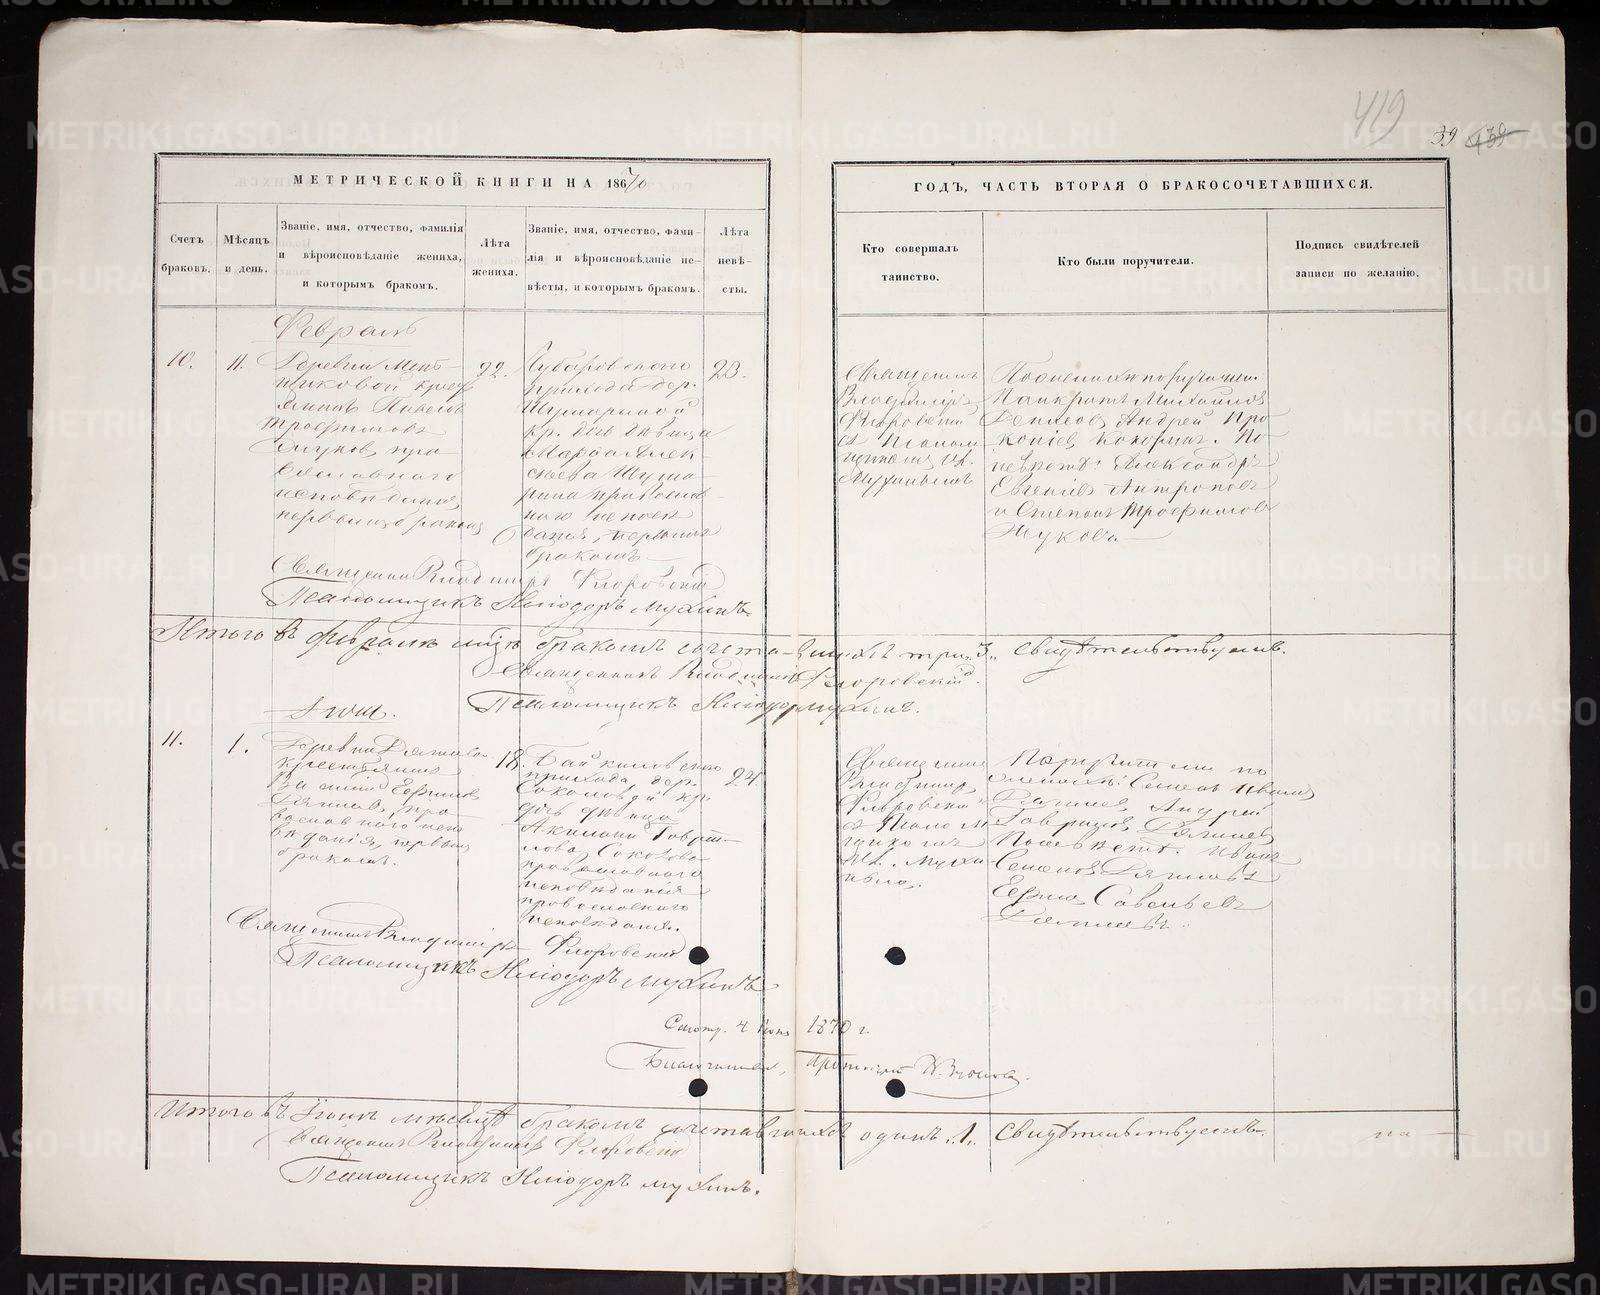 419
39 438
МЕТРИЧЕСКОЙ КНИГИ НА 1870
ГОДЪ, ЧАСТЬ ВТОРАЯ О БРАКОСОЧЕТАВШИХСЯ.
Счетъ
браковъ.
Мѣсяцъ
и день.
Званіе, имя, отчество, фамилія
и вѣроисповѣданіе жениха,
и которымъ бракомъ.
Лѣта
жениха.
Званіе, имя, отчество, фами-
лія и вѣроисповѣданіе не-
вѣсты, и которымъ бракомъ.
Лѣта
невѣ-
сты.
Кто совершалъ
таинство.
Кто были поручители.
Подпись свидѣтелей
записи по желанію.
Февраль
10.
11.
Деревни
Павелъ
Трофимовъ
Жуковъ, пра
вославнаго
исповѣданія,
первымъ бракомъ
22.
прихода дер.
кр. дочь дѣвица
Марѳа Алек-
сѣева Шума
рина православ-
наго исповѣ
данія, первымъ
бракомъ
23.
Священникъ
Владиміръ
Флоровскій
съ Псалом
щикомъ Ил.
Мухинымъ
По женихѣ поручители
Панкратъ Михайловъ
Андрей Про
копіевъ Кокоринъ. По
невѣстѣ: Александръ
Евгеніевъ Антроповъ
и Степанъ Трофимовъ
Жуковъ
Священникъ Владиміръ Флоровскій
Псаломщикъ Иліодоръ Мухинъ.
Итого въ февралѣ мѣсяцѣ бракомъ сочетавшихся три. 3. свидѣтельствуемъ.
Священникъ Владиміръ Флоровскій
Псаломщикъ Иліодоръ Мухинъ.
Іюнь.
11.
1.
крестьянинъ
Ефимовъ
пра
вославнаго испо
вѣданія, первымъ
бракомъ.
18.
прихода, дер.
Соколовой кр.
дочь дѣвица
Акилина Гаври-
лова Соколова
православнаго
исповѣданія
православнаго
исповѣданія.
24.
Священникъ
Владиміръ
Флоровскій
съ Псалом
щикомъ
Ил. Мухи
нымъ.
Поручители по
женихѣ: Семенъ Ивановъ
Андрей
Гавриловъ
По невѣстѣ. Иванъ
Семеновъ
Ефимъ Савельевъ
Священникъ Владиміръ Флоровскій
Псаломщикъ Иліодоръ Мухинъ
Смотр. 4 1870 г.
Благочинный, Протоіерей
Итого въ Іюнѣ мѣсяцѣ бракомъ сочетавшихся одинъ. 1. Свидѣтельствуемъ.
Священникъ Владиміръ Флоровскій
Псаломщикъ Иліодоръ Мухинъ.
METRIKI.GASO-URAL.RU